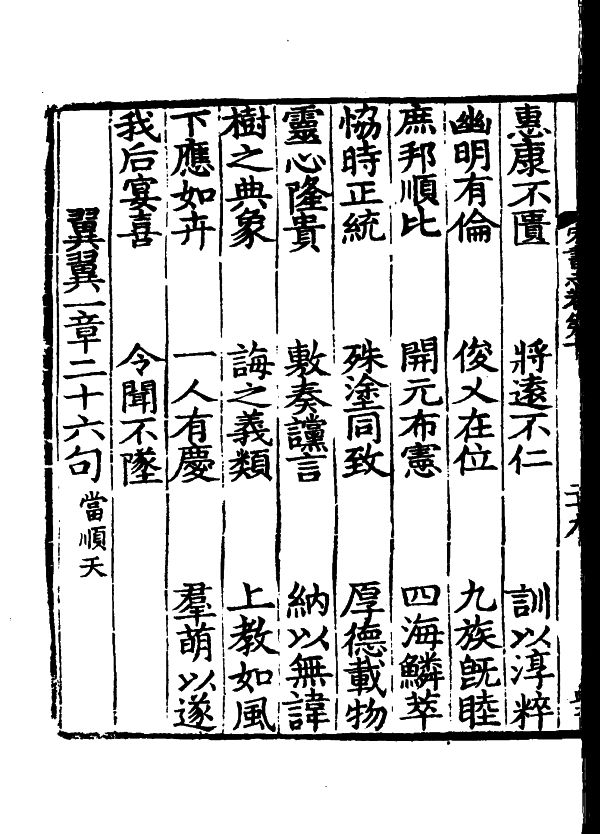 惠康不匱　將遠不仁　訓以淳粹
幽明有倫　俊乂在位　九族旣睦
庶邦順比　開元布憲　四海鱗萃
恊時正統　殊塗同致　厚德載物
靈心隆貴　敷奏讜言　納以無諱
樹之典象　誨之義類　上教如風
下應如卉　一人有慶　羣萌以遂
我后宴喜　令聞不墜
翼翼一章二十六句　當順天